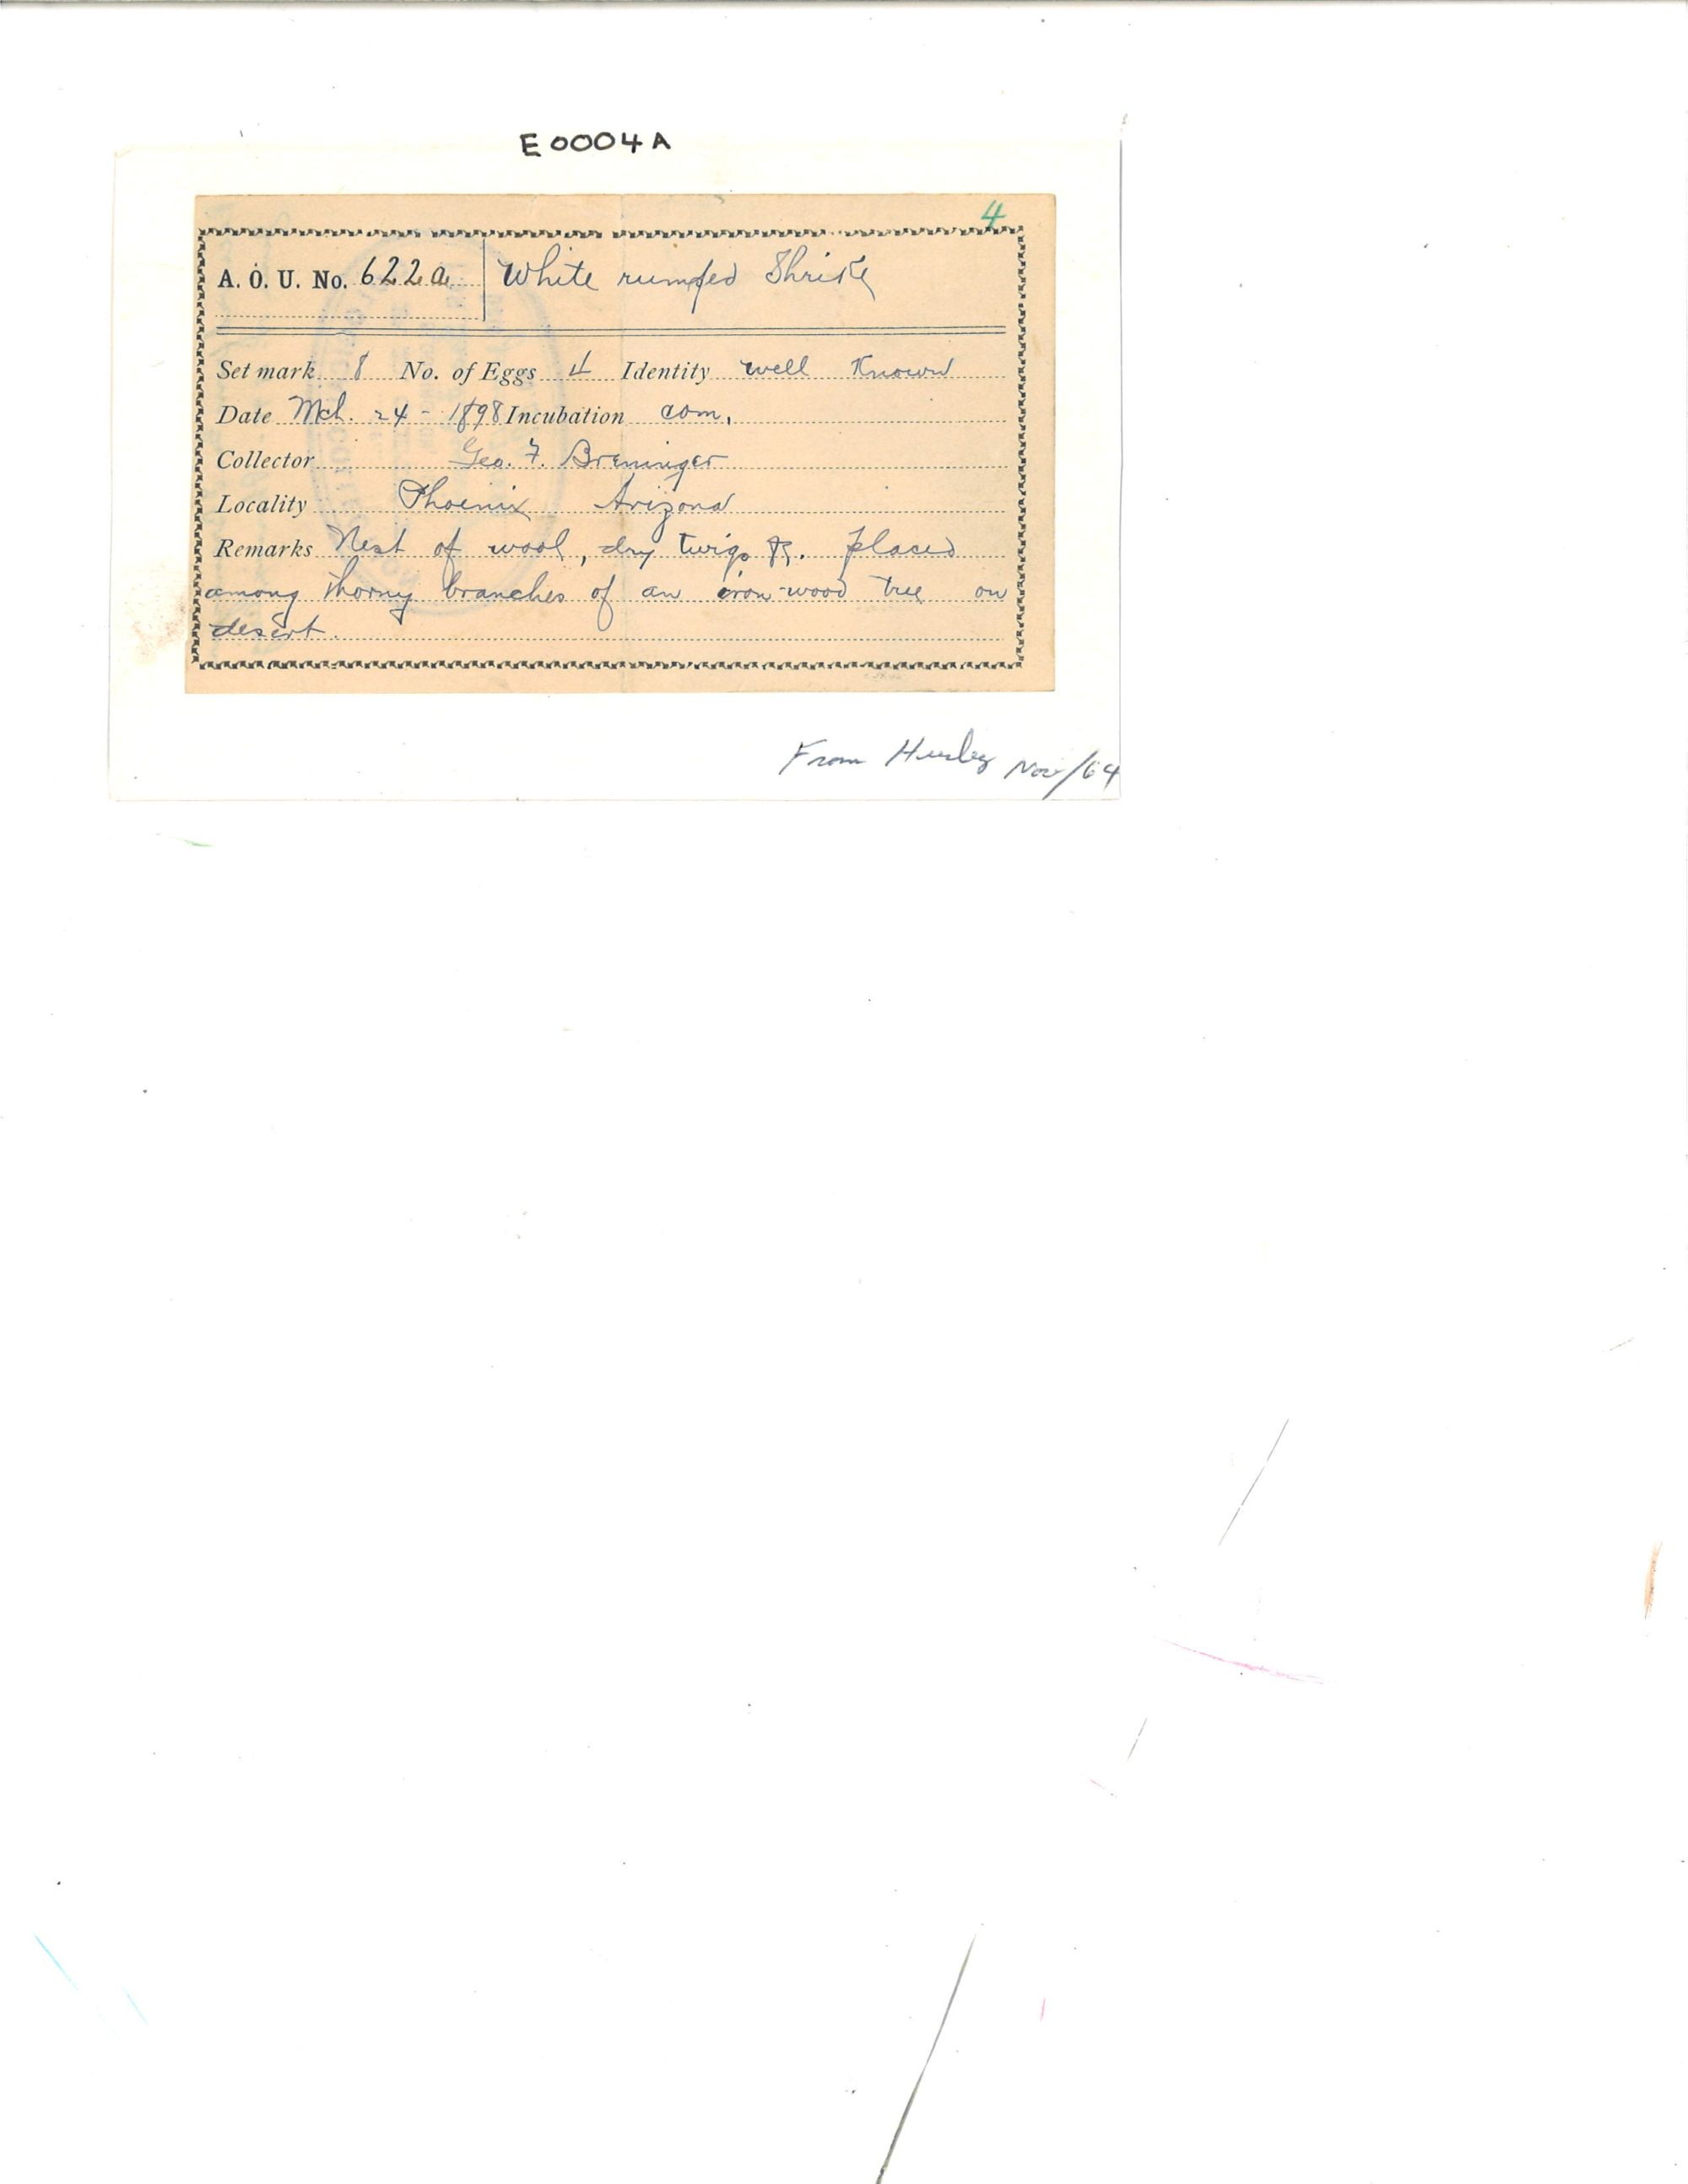 E0004A
4
A. O. U. No. 622a White rumped Shrike
Set mark 8 No. of Eggs 4 Identity well Known
Date Mch. 24 - 1898 Incubation com.
Collector Geo. F. Breninger
Locality Phoenix Arizona
Remarks Nest of wool, dry twigs &. placed
among thorny branches of an iron-wood tree on
desert.
From Nov/64